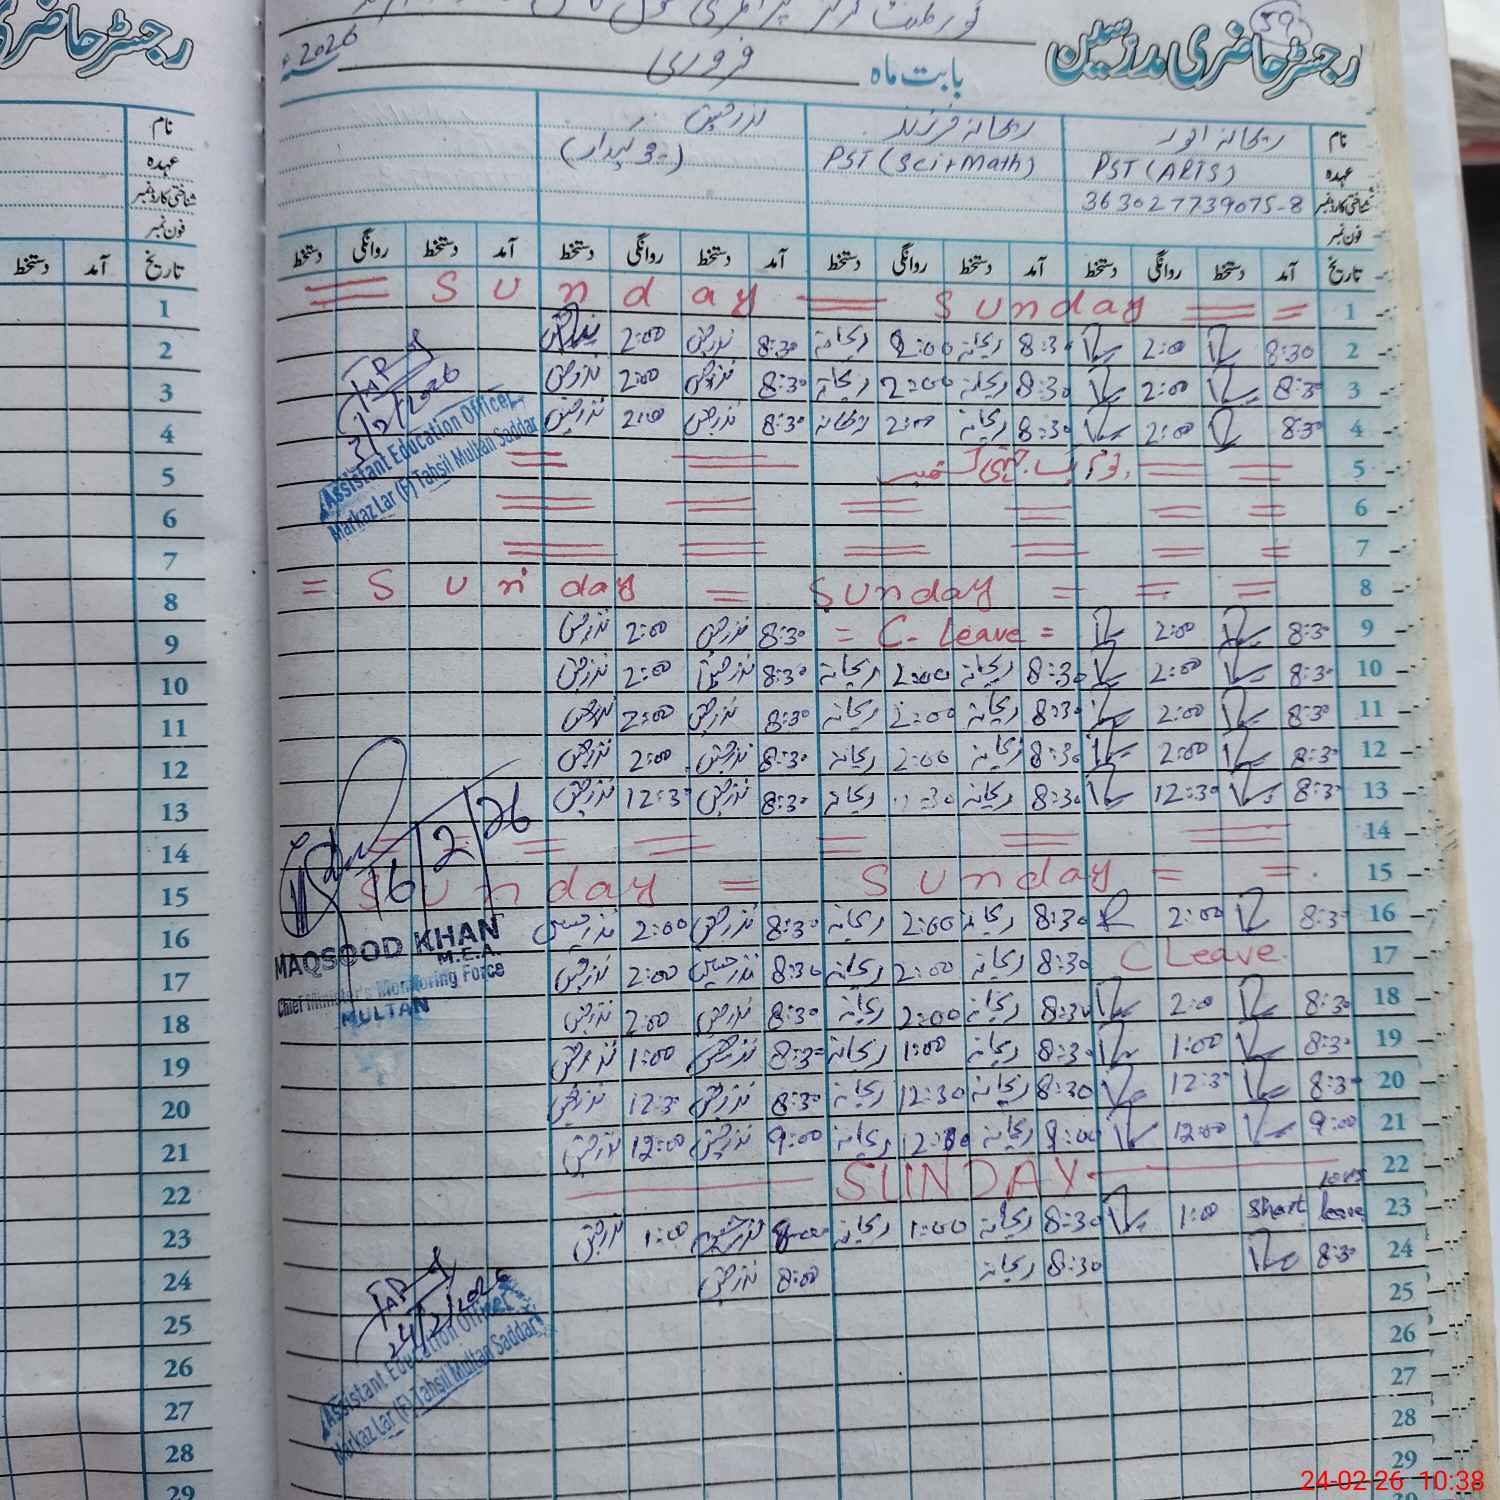 رجسٹر حاضری مدرسین
59
2026ء
بابت ماہ فروری
نام ریحانہ انور ریحانہ فرزند نذر حسین
عہدہ PST (ARTS) PST (Sci+Math) (چوکیدار)
شناختی کارڈ نمبر 363027739075-8
فون نمبر
تاریخ آمد دستخط روانگی دستخط آمد دستخط روانگی دستخط آمد دستخط روانگی دستخط آمد دستخط روانگی دستخط
1 Sunday Sunday
2 8:30 2:00 8:30 ریحانہ 2:00 ریحانہ 8:30 نذر حسین 2:00
3 8:30 2:00 8:30 ریحانہ 2:00 ریحانہ 8:30 نذر حسین 2:00 نذر حسین
4 8:30 2:00 8:30 ریحانہ 2:00 ریحانہ 8:30 نذر حسین 2:00 نذر حسین
5
6
7
8 Sunday Sunday
9 8:30 2:00 = C- Leave = 8:30 نذر حسین 2:00 نذر حسین
10 8:30 2:00 8:30 ریحانہ 2:00 ریحانہ 8:30 نذر حسین 2:00 نذر حسین
11 8:30 2:00 8:30 ریحانہ 2:00 ریحانہ 8:30 نذر حسین 2:00 نذر حسین
12 8:30 2:00 8:30 ریحانہ 2:00 ریحانہ 8:30 نذر حسین 2:00 نذر حسین
13 8:30 12:30 8:30 ریحانہ ریحانہ 8:30 نذر حسین 12:30 نذر حسین
14
15 Sunday Sunday
16 8:30 2:00 8:30 ریحانہ 2:00 ریحانہ 8:30 نذر حسین 2:00 نذر حسین
17 C Leave 8:30 ریحانہ 2:00 ریحانہ 8:30 نذر حسین 2:00 نذر حسین
18 8:30 2:00 8:30 ریحانہ 2:00 ریحانہ 8:30 نذر حسین 2:00 نذر حسین
19 8:30 1:00 8:30 ریحانہ 1:00 ریحانہ 8:30 نذر حسین 1:00 نذر حسین
20 8:30 12:30 8:30 ریحانہ 12:30 ریحانہ 8:30 نذر حسین 12:30 نذر حسین
21 9:00 12:00 9:00 ریحانہ 12:00 ریحانہ 9:00 نذر حسین 12:00 نذر حسین
22 SUNDAY
23 Short leave 1:00 8:30 ریحانہ 1:00 ریحانہ نذر حسین 1:00 نذر حسین
24 8:30 8:30 ریحانہ 8:00 نذر حسین
25
26
27
28
29
3/2/2026
Assistant Education Officer
Markaz Lar (F) Tahsil Multan Saddar
16/2/26
MAQSOOD KHAN
M.E.A.
Chief Minister's Monitoring Force
MULTAN
24/2/2026
Assistant Education Officer
Markaz Lar (F) Tahsil Multan Saddar
نام
عہدہ
شناختی کارڈ نمبر
فون نمبر
تاریخ آمد دستخط
1
2
3
4
5
6
7
8
9
10
11
12
13
14
15
16
17
18
19
20
21
22
23
24
25
26
27
28
29
24-02-26 10:38